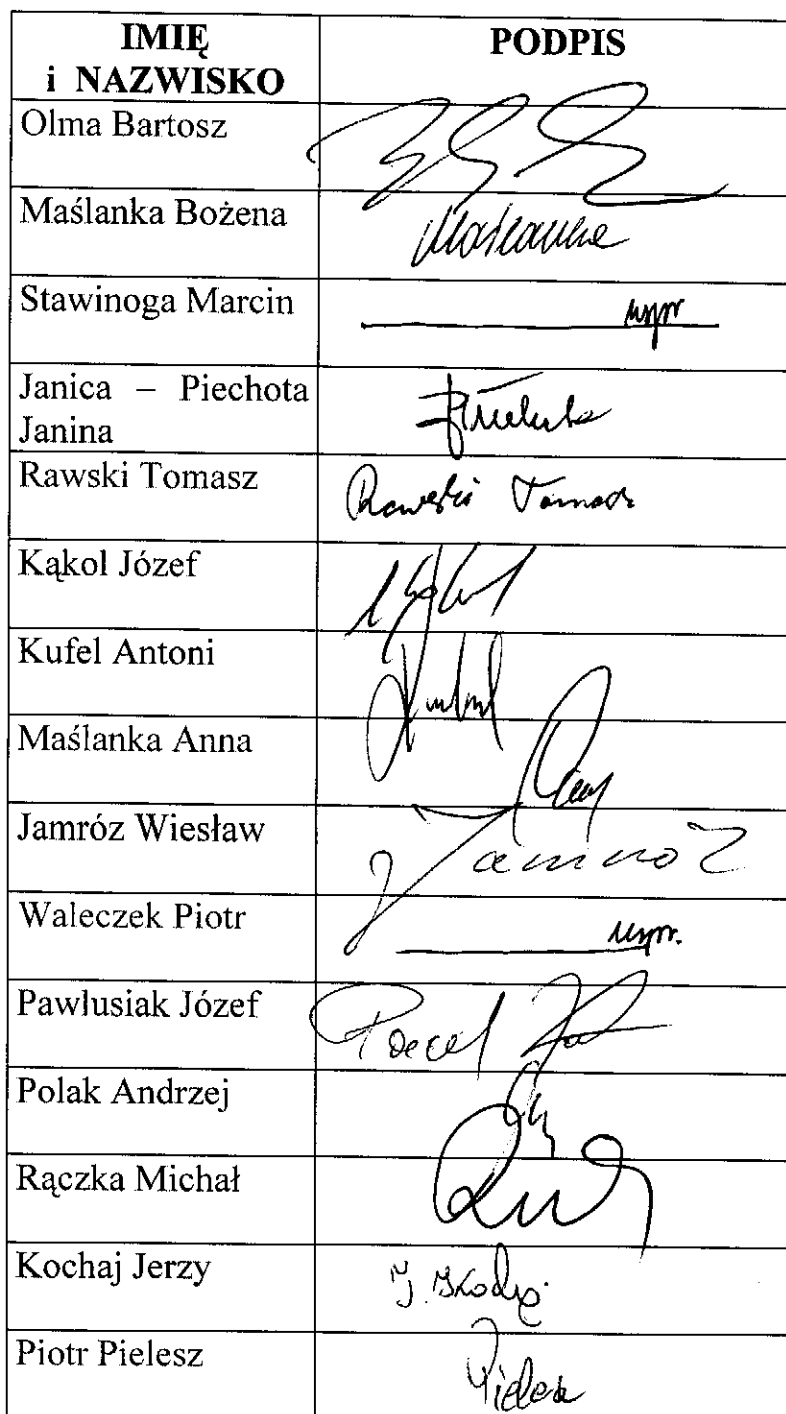 IMIĘ
i NAZWISKO
PODPIS
Olma Bartosz
Maślanka Bożena
Maślanka
Stawinoga Marcin
uspr
Janica – Piechota
Janina
Rawski Tomasz
Rawski Tomasz
Kąkol Józef
Kufel Antoni
Maślanka Anna
Jamróz Wiesław
Jamróz
Waleczek Piotr
uspr.
Pawlusiak Józef
Polak Andrzej
Rączka Michał
Kochaj Jerzy
Piotr Pielesz